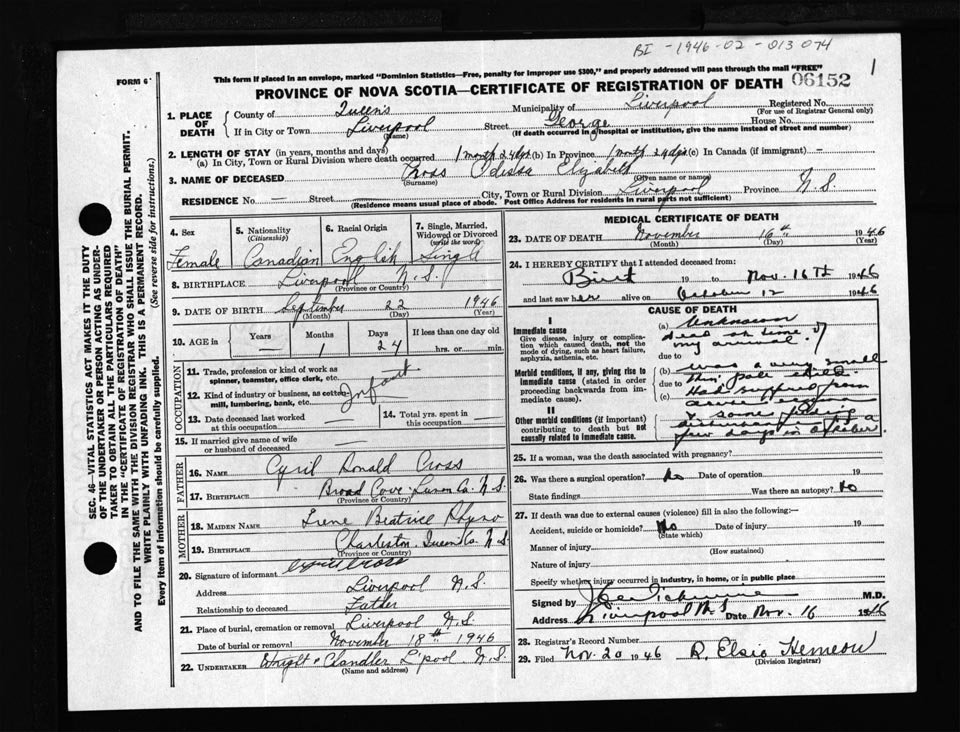 BI - 1946 - 02 - 013 074
FORM 6
This form if placed in an envelope, marked "Dominion Statistics—Free, penalty for improper use $300," and properly addressed will pass through the mail "FREE"
06152
1
PROVINCE OF NOVA SCOTIA—CERTIFICATE OF REGISTRATION OF DEATH
1. PLACE OF DEATH
County of Queen's Municipality of Liverpool Registered No.
(For use of Registrar General only)
If in City or Town Liverpool Street George House No.
(Name) (If death occurred in hospital or institution, give the name instead of street and number)
2. LENGTH OF STAY (in years, months and days)
(a) In City, Town or Rural Division where death occurred 1 month 24 dys (b) In Province 1 month 24 dys (c) In Canada (if immigrant) —
3. NAME OF DECEASED Cross Odessa Elizabeth
(Surname) (Given name or names)
RESIDENCE No. — Street — City, Town or Rural Division Liverpool Province N.S.
(Residence means usual place of abode. Post Office Address for residents in rural parts not sufficient)
4. Sex Female
5. Nationality (Citizenship) Canadian
6. Racial Origin English
7. Single, Married, Widowed or Divorced (write the word) Single
8. BIRTHPLACE Liverpool N.S.
(Province or Country)
9. DATE OF BIRTH September 22 1946
(Month) (Day) (Year)
10. AGE in Years — Months 1 Days 24 If less than one day old
hrs. or min.
OCCUPATION
11. Trade, profession or kind of work as spinner, teamster, office clerk, etc.
12. Kind of industry or business, as cotton-mill, lumbering, bank, etc.
Infant
13. Date deceased last worked at this occupation
14. Total yrs. spent in this occupation
15. If married give name of wife or husband of deceased
FATHER
16. NAME Cyril Donald Cross
17. BIRTHPLACE Broad Cove Lunen Co. N.S.
(Province or Country)
MOTHER
18. MAIDEN NAME Irene Beatrice Rhyno
19. BIRTHPLACE Charleston Queens Co. N.S.
(Province or Country)
20. Signature of informant Cyril Cross
Address Liverpool N.S.
Relationship to deceased Father
21. Place of burial, cremation or removal Liverpool N.S.
Date of burial or removal November 18th 1946
22. UNDERTAKER Wright & Chandler L'pool N.S.
(Name and address)
MEDICAL CERTIFICATE OF DEATH
23. DATE OF DEATH November 16th 1946
(Month) (Day) (Year)
24. I HEREBY CERTIFY that I attended deceased from:
Birt 19 to Nov. 16th 1946
and last saw her alive on October 12 1946
CAUSE OF DEATH
I
Immediate cause
Give disease, injury or complication which caused death, not the mode of dying, such as heart failure, asphyxia, asthenia, etc.
Morbid conditions, if any, giving rise to immediate cause (stated in order proceeding backwards from immediate cause).
II
Other morbid conditions (if important) contributing to death but not causally related to immediate cause.
(a) Unknown
dead on
my arrival.
due to
(b) was very small
due to thin pale child.
(c) Had suffered from
& some feeding
disturbance
few days in October
25. If a woman, was the death associated with pregnancy?
26. Was there a surgical operation? No Date of operation 19
State findings Was there an autopsy? No
27. If death was due to external causes (violence) fill in also the following:—
Accident, suicide or homicide? No Date of injury 19
(State which)
Manner of injury
(How sustained)
Nature of injury
Specify whether injury occurred in industry, in home, or in public place
Signed by M.D.
Address Liverpool N.S. Date Nov. 16 1946
28. Registrar's Record Number
29. Filed Nov. 20 1946 R. Elsie Hemeon
(Division Registrar)
SEC. 46—VITAL STATISTICS ACT MAKES IT THE DUTY
OF THE UNDERTAKER OR PERSON ACTING AS UNDER-
TAKER TO OBTAIN ALL THE PARTICULARS REQUIRED
IN THE "CERTIFICATE OF REGISTRATION OF DEATH"
AND TO FILE THE SAME WITH THE DIVISION REGISTRAR WHO SHALL ISSUE THE BURIAL PERMIT.
WRITE PLAINLY WITH UNFADING INK. THIS IS A PERMANENT RECORD.
Every item of information should be carefully supplied. (See reverse side for instructions.)